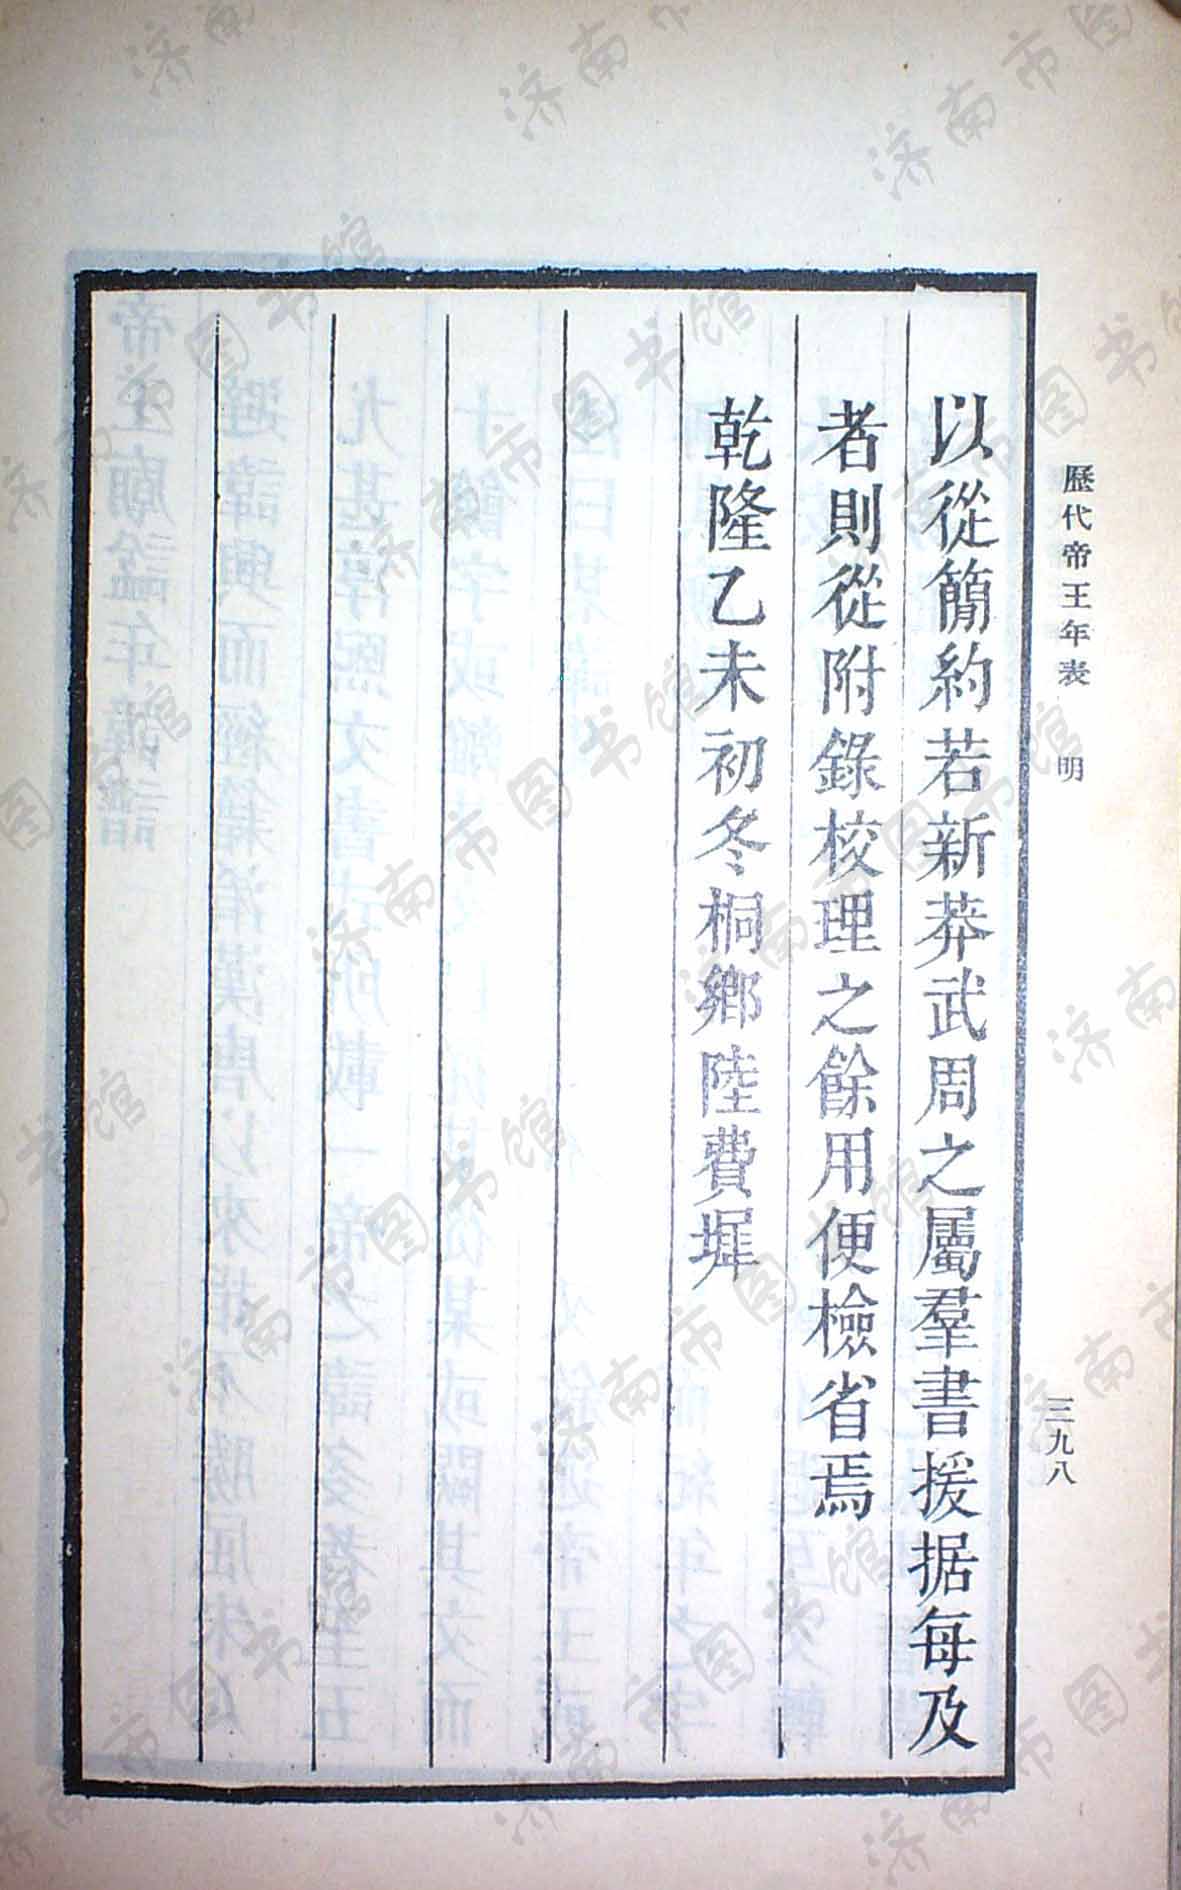 歷代帝王年表 明 三九八
以從簡約若新莽武周之屬羣書援据每及
者則從附錄校理之餘用便檢省焉
乾隆乙未初冬桐鄉陸費墀
济南市图书馆